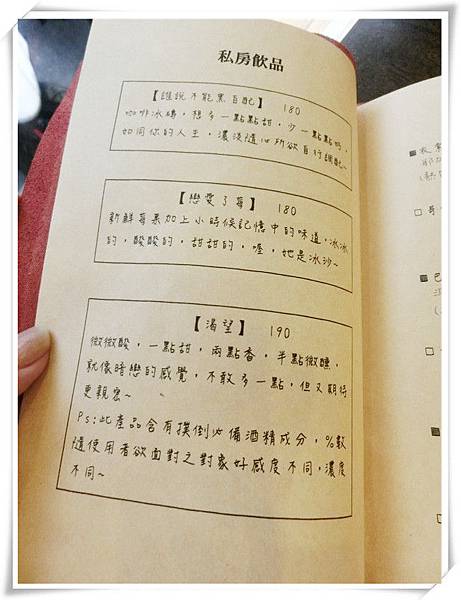 私房飲品
【誰說不能黑白配】 180
咖啡冰磚，想多一點點甜，少一點點奶，
如同你的人生，濃淡隨心所欲自行調配~
【戀愛了莓】 180
新鮮莓果加上小時候記憶中的味道，冰冰
的，酸酸的，甜甜的，喔，她是冰沙~
【渴望】 190
微微酸，一點甜，兩點香，半點微醺，
就像暗戀的感覺，不敢多一點，但又期待
更親密~
Ps:此產品含有撲倒必備酒精成分，%數
隨使用者欲面對之對象好感度不同，濃度
不同~